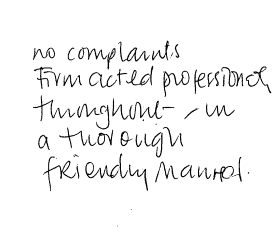 no complaints
Firm acted professionally
throughout - in
a thorough
friendly manner.